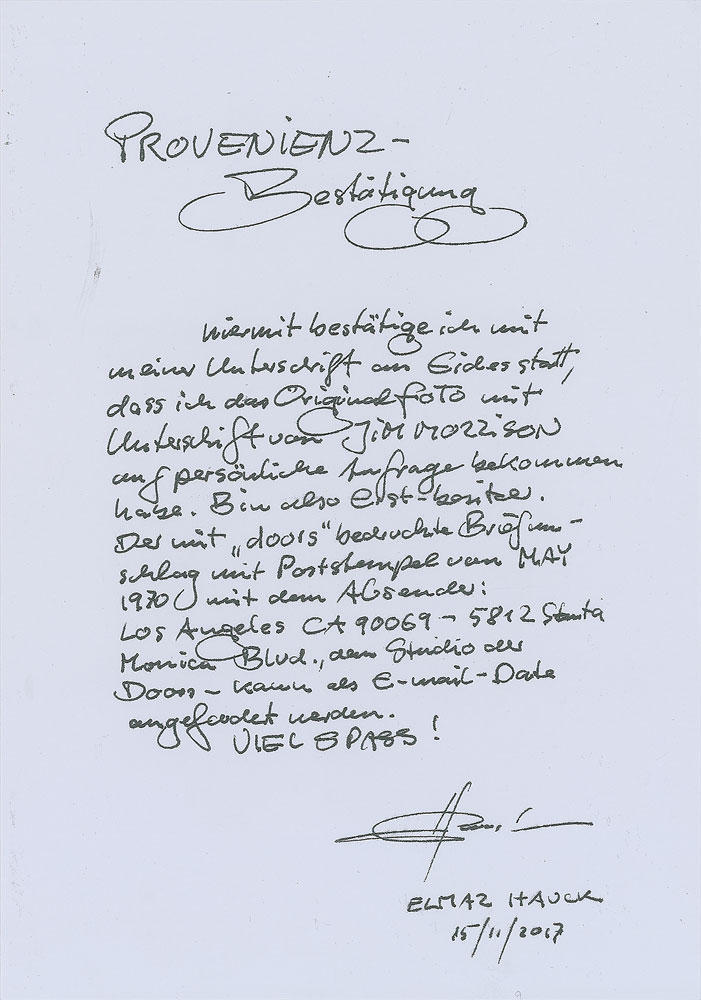 PROVENIENZ-
Bestätigung
hiermit bestätige ich mit
meiner Unterschrift an Eides statt,
dass ich das Originalfoto mit
Unterschift von JIM MORRISON
auf persönliche Anfrage bekommen
habe. Bin also Erst-besitzer.
Der mit „doors“ bedruckte Briefum-
schlag mit Poststempel vom MAY
1970 mit dem Absender:
Los Angeles CA 90069 - 5812 Santa
Monica Blvd., dem Studio der
Doors - kann als E-mail-Datei
angefordert werden.
VIEL SPASS!
ELMAR HAUCK
15/11/2017